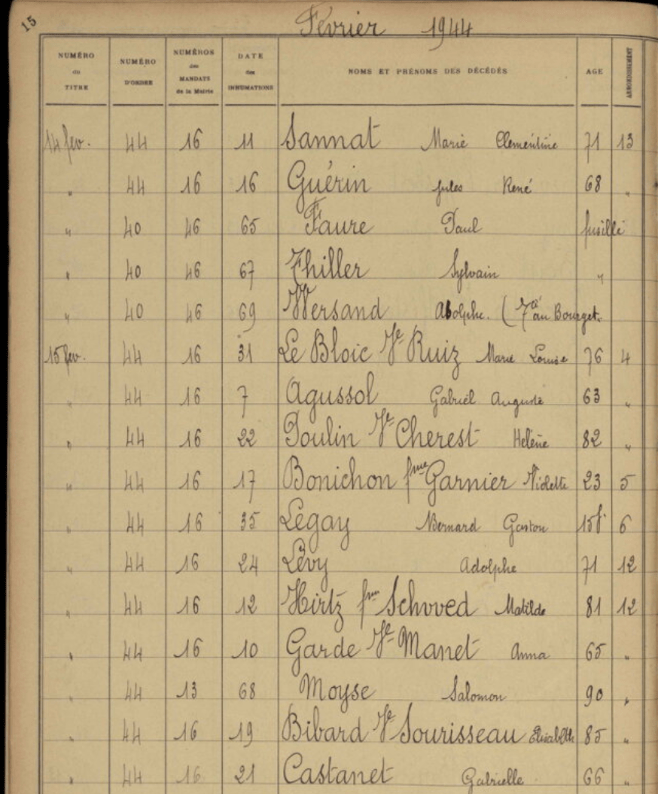 15
Février 1944
NUMÉRO du TITRE NUMÉRO D'ORDRE NUMÉROS des MANDATS de la Mairie DATE des INHUMATIONS NOMS ET PRÉNOMS DES DÉCÉDÉS AGE ARRONDISSEMENT
14 fev. 44 16 11 Sannat Marie Clementine 71 13
" 44 16 16 Guérin Jules René 68 "
" 40 46 65 Faure Paul fusillé
" 40 46 67 Thiller Sylvain "
" 40 46 69 Wersand Adolphe. ( au Bourget.
15 fev. 44 16 31 Le Bloic Ve Ruiz Marie Louise 76 4
" 44 16 7 Agussol Gabriel Auguste 63 "
" 44 16 22 Poulin Ve Cherest Hélène 82 "
" 44 16 17 Bonichon fme Garnier Violette 23 5
" 44 16 35 Legay Bernard Gaston 15j 6
" 44 16 24 Lévy Adolphe 71 12
" 44 16 12 Hirtz fme Schoved Matilde 81 12
" 44 16 10 Garde Ve Manet Anna 65 "
" 44 13 68 Moyse Salomon 90 "
" 44 16 19 Bibard Ve Sourisseau Elisabeth 85 "
" 44 16 21 Castanet Gabrielle 66 "